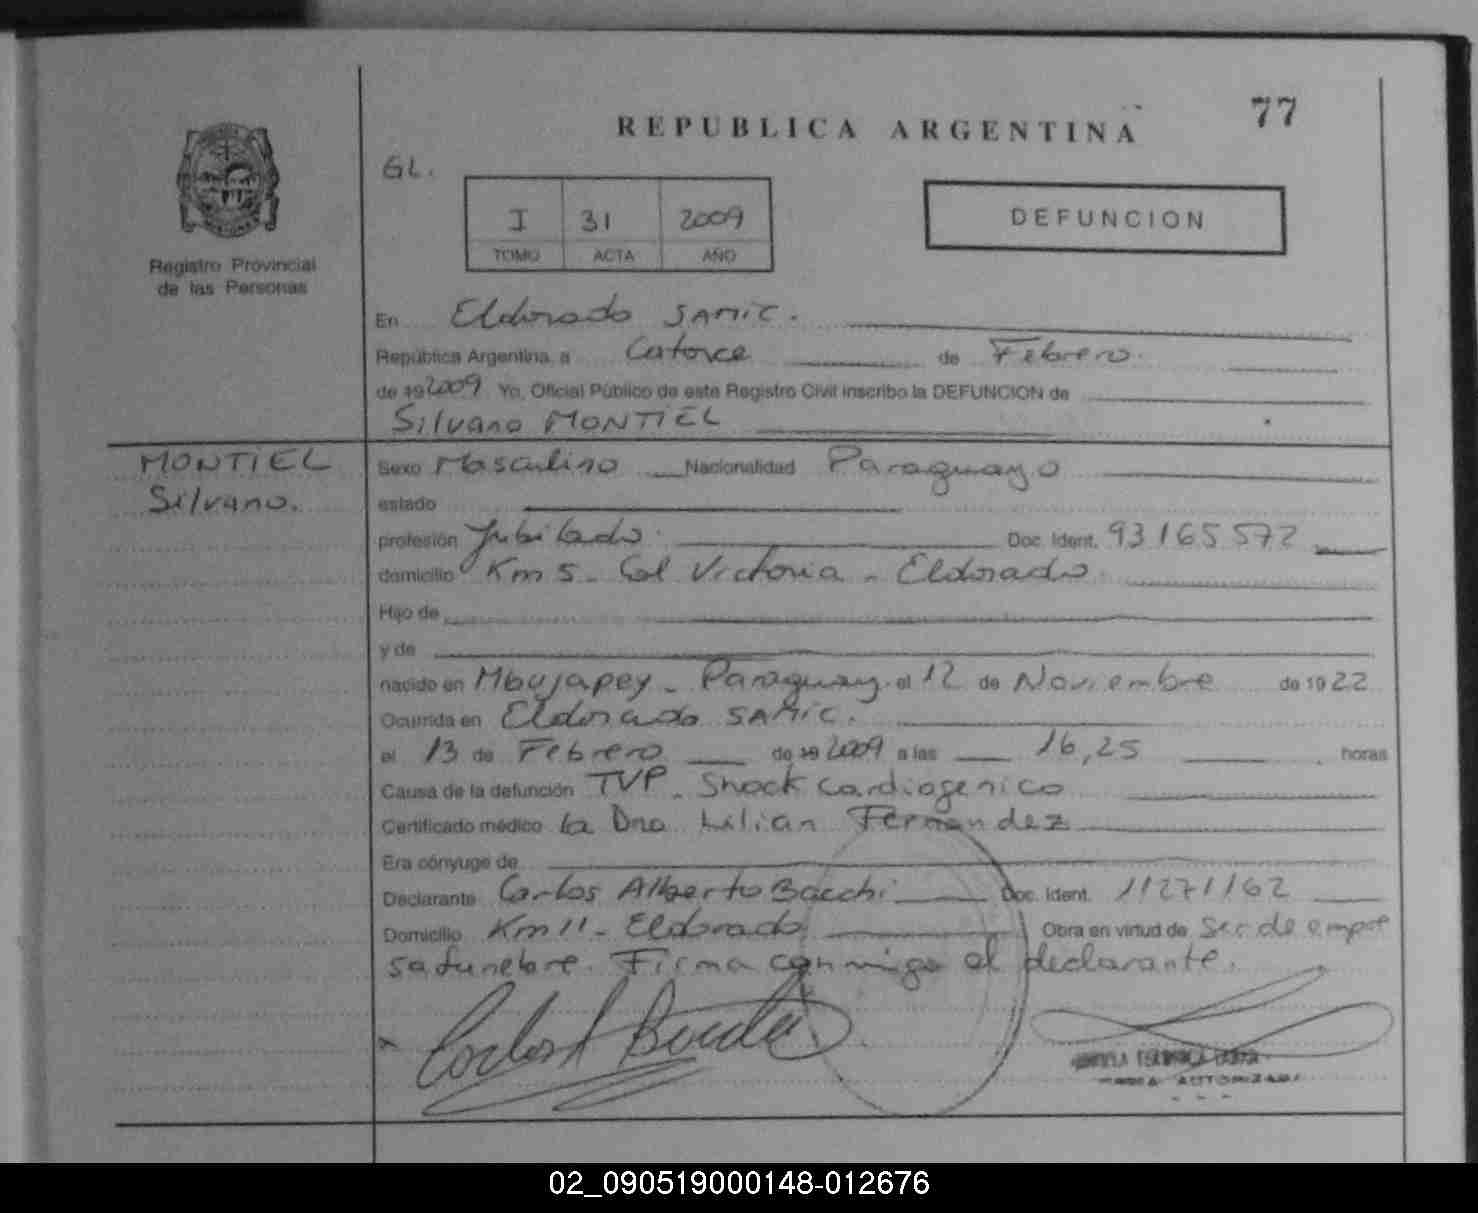 77
REPUBLICA ARGENTINA
GL.
I 31 2009
TOMO ACTA AÑO
DEFUNCION
Registro Provincial
de las Personas
En Eldorado SAMIC.
República Argentina, a Catorce de Febrero.
de 19 2009 Yo, Oficial Público de este Registro Civil inscribo la DEFUNCION de
Silvano MONTIEL
MONTIEL
Silvano.
Sexo Masculino Nacionalidad Paraguayo
estado
profesión Jubilado. Doc. Ident. 93165572
domicilio Km 5 - Col Victoria - Eldorado
Hijo de
y de
nacido en Mbujapey - Paraguay el 12 de Noviembre de 1922
Ocurrida en Eldorado SAMIC.
el 13 de Febrero de 19 2009 a las 16,25 horas
Causa de la defunción TVP - Shock cardiogenico
Certificado médico la Dra Lilian Fernandez
Era cónyuge de
Declarante Carlos Alberto Bacchi Doc. Ident. 11271162
Domicilio Km 11 - Eldorado Obra en virtud de Ser de empre
sa funebre. Firma conmigo el declarante.
02_090519000148-012676